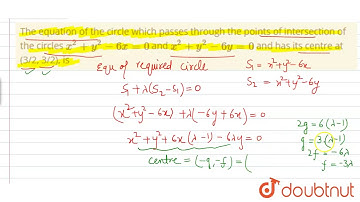 The equation of the circle which passes through the points of intersection of
the circles x² + y² − 6x = 0 and x² + y² − 6y = 0 and has its centre at
(3/2, 3/2), is
Equⁿ of required circle
S₁ + λ(S₂ − S₁) = 0
(x² + y² − 6x) + λ(−6y + 6x) = 0
x² + y² + 6x(λ−1) − 6λy = 0
centre = (−g, −f) = (
S₁ = x² + y² − 6x
S₂ = x² + y² − 6y
2g = 6(λ−1)
g = 3(λ−1)
2f = −6λ
f = −3λ
doubtnut